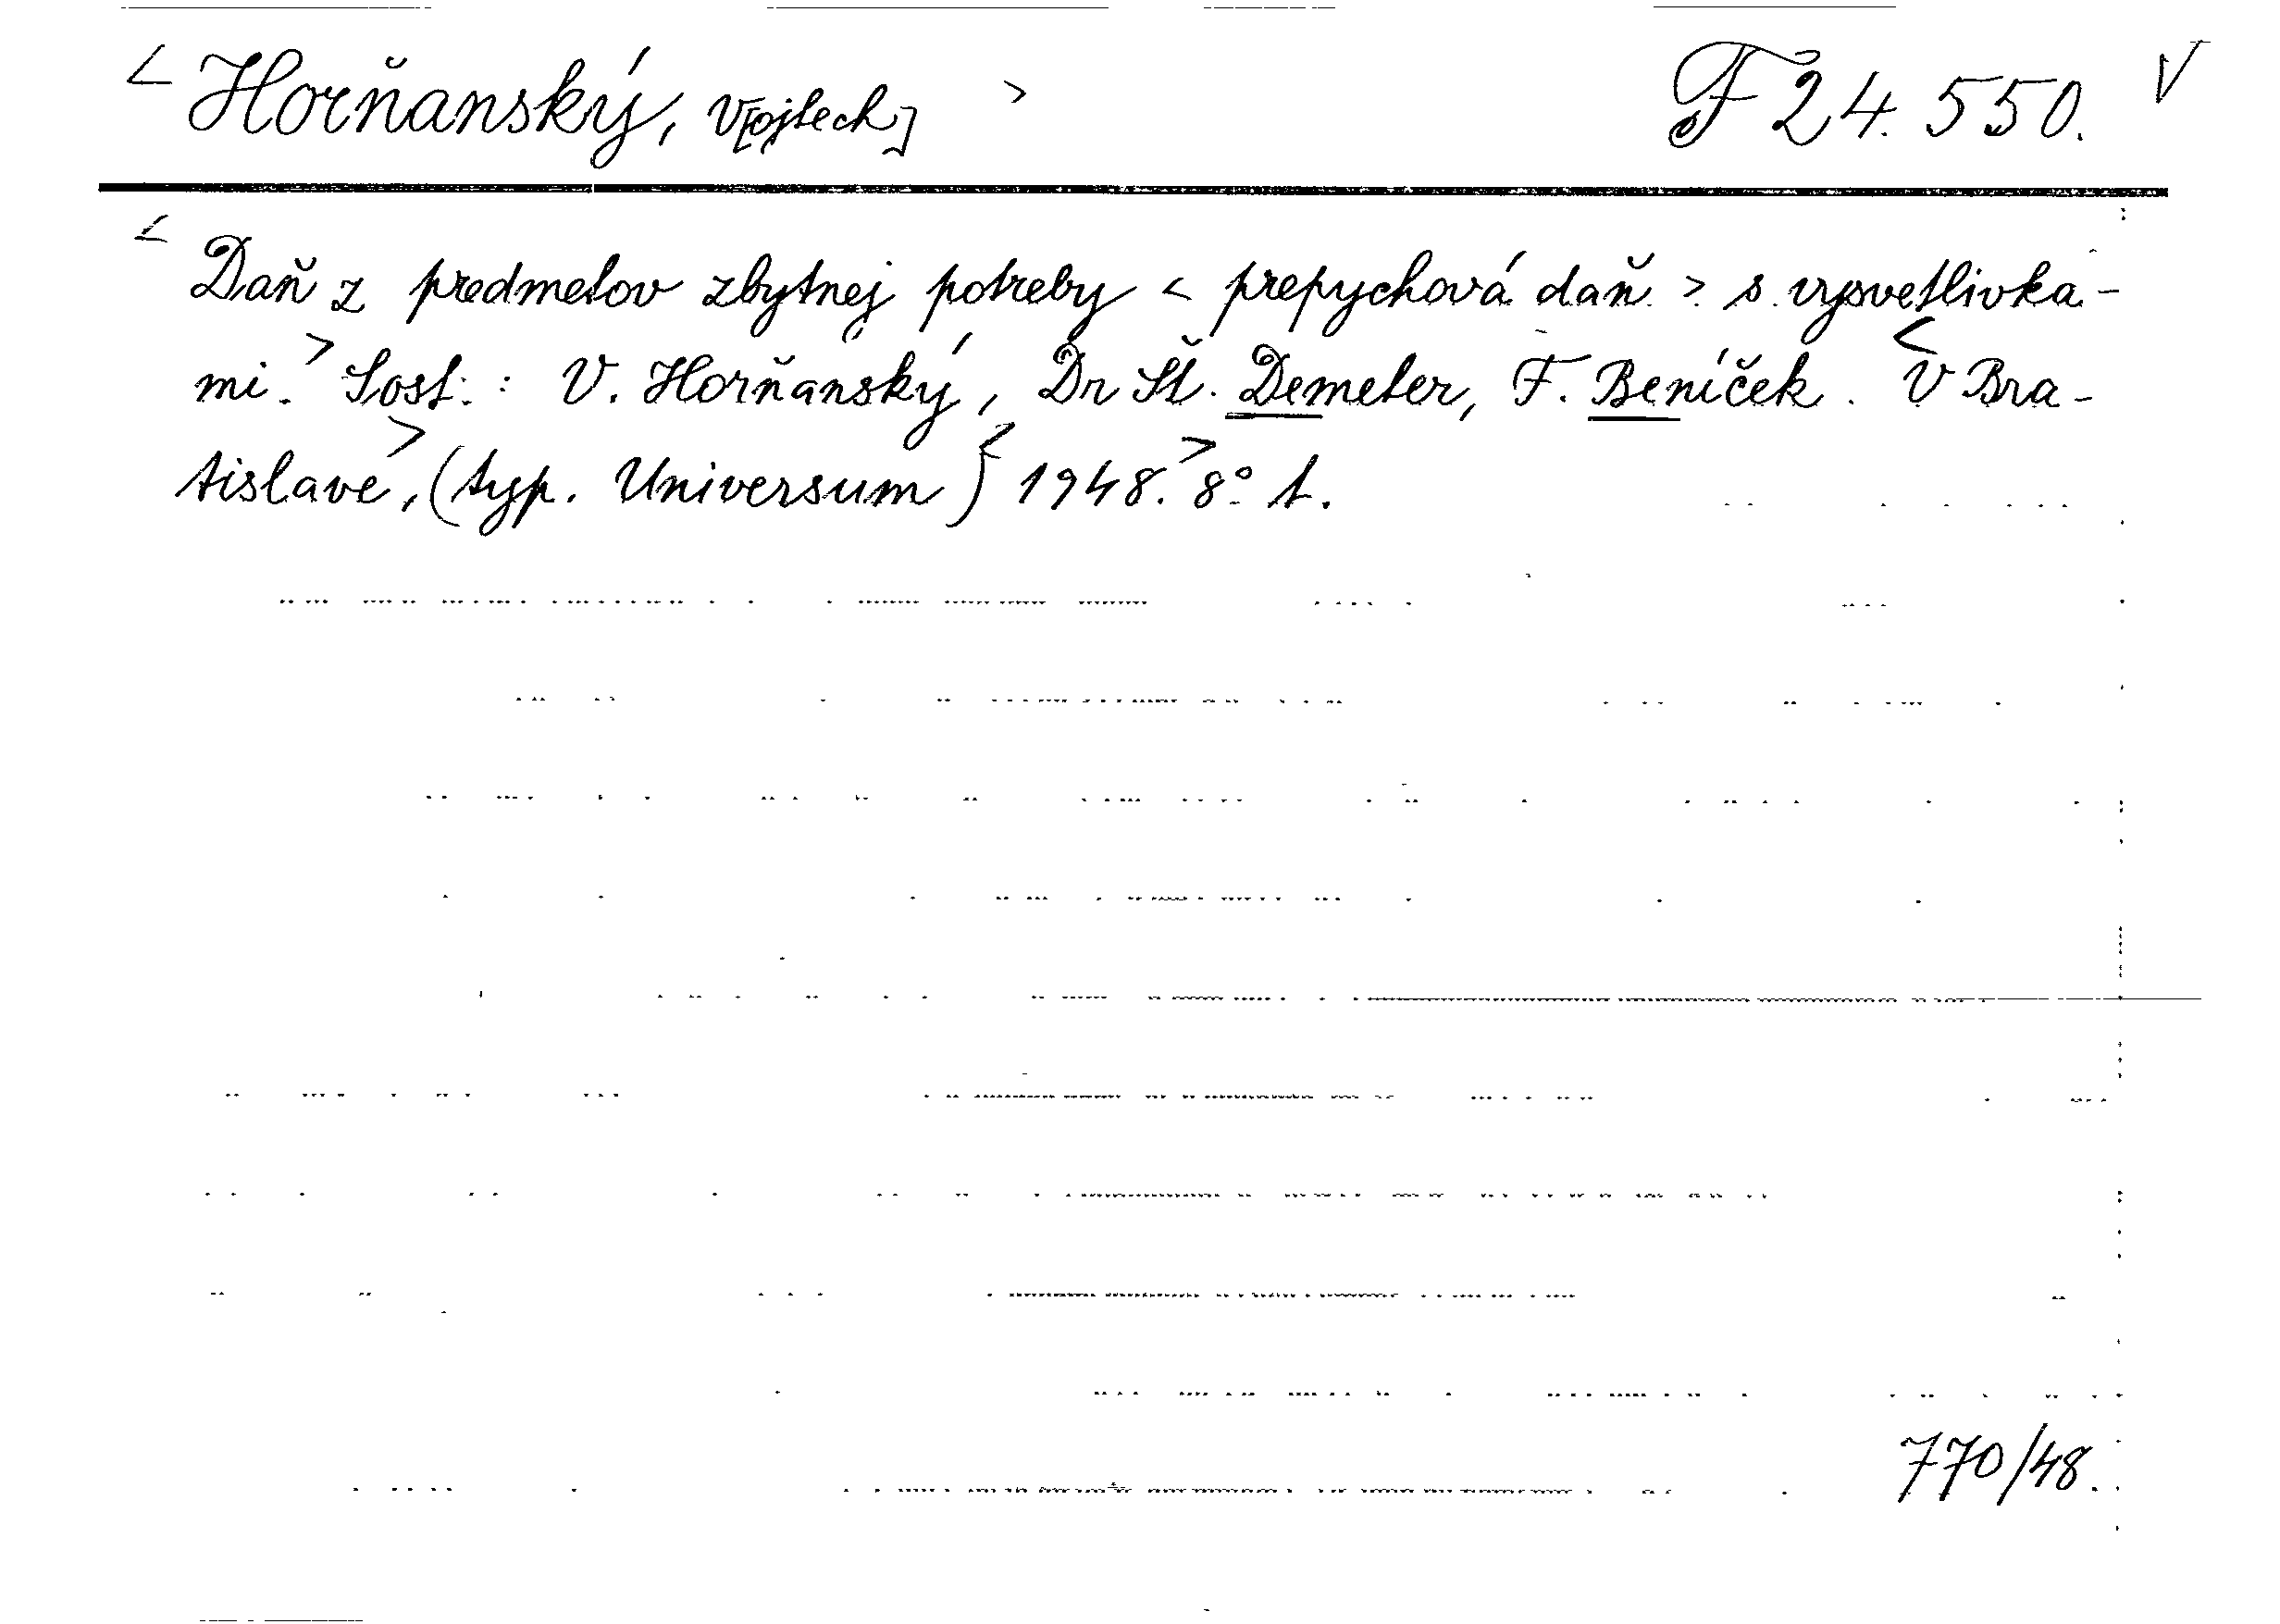 < Horňanský, V[ojtech] > F 24.550. V
< Daň z predmetov zbytnej potreby < prepychová daň > s vysvetlivka-
mi. > Sost. : V. Horňanský, Dr Št. Demeter, F. Beníček. < V Bra-
tislave >, (typ. Universum) < 1948. > 8° t.
770/48.